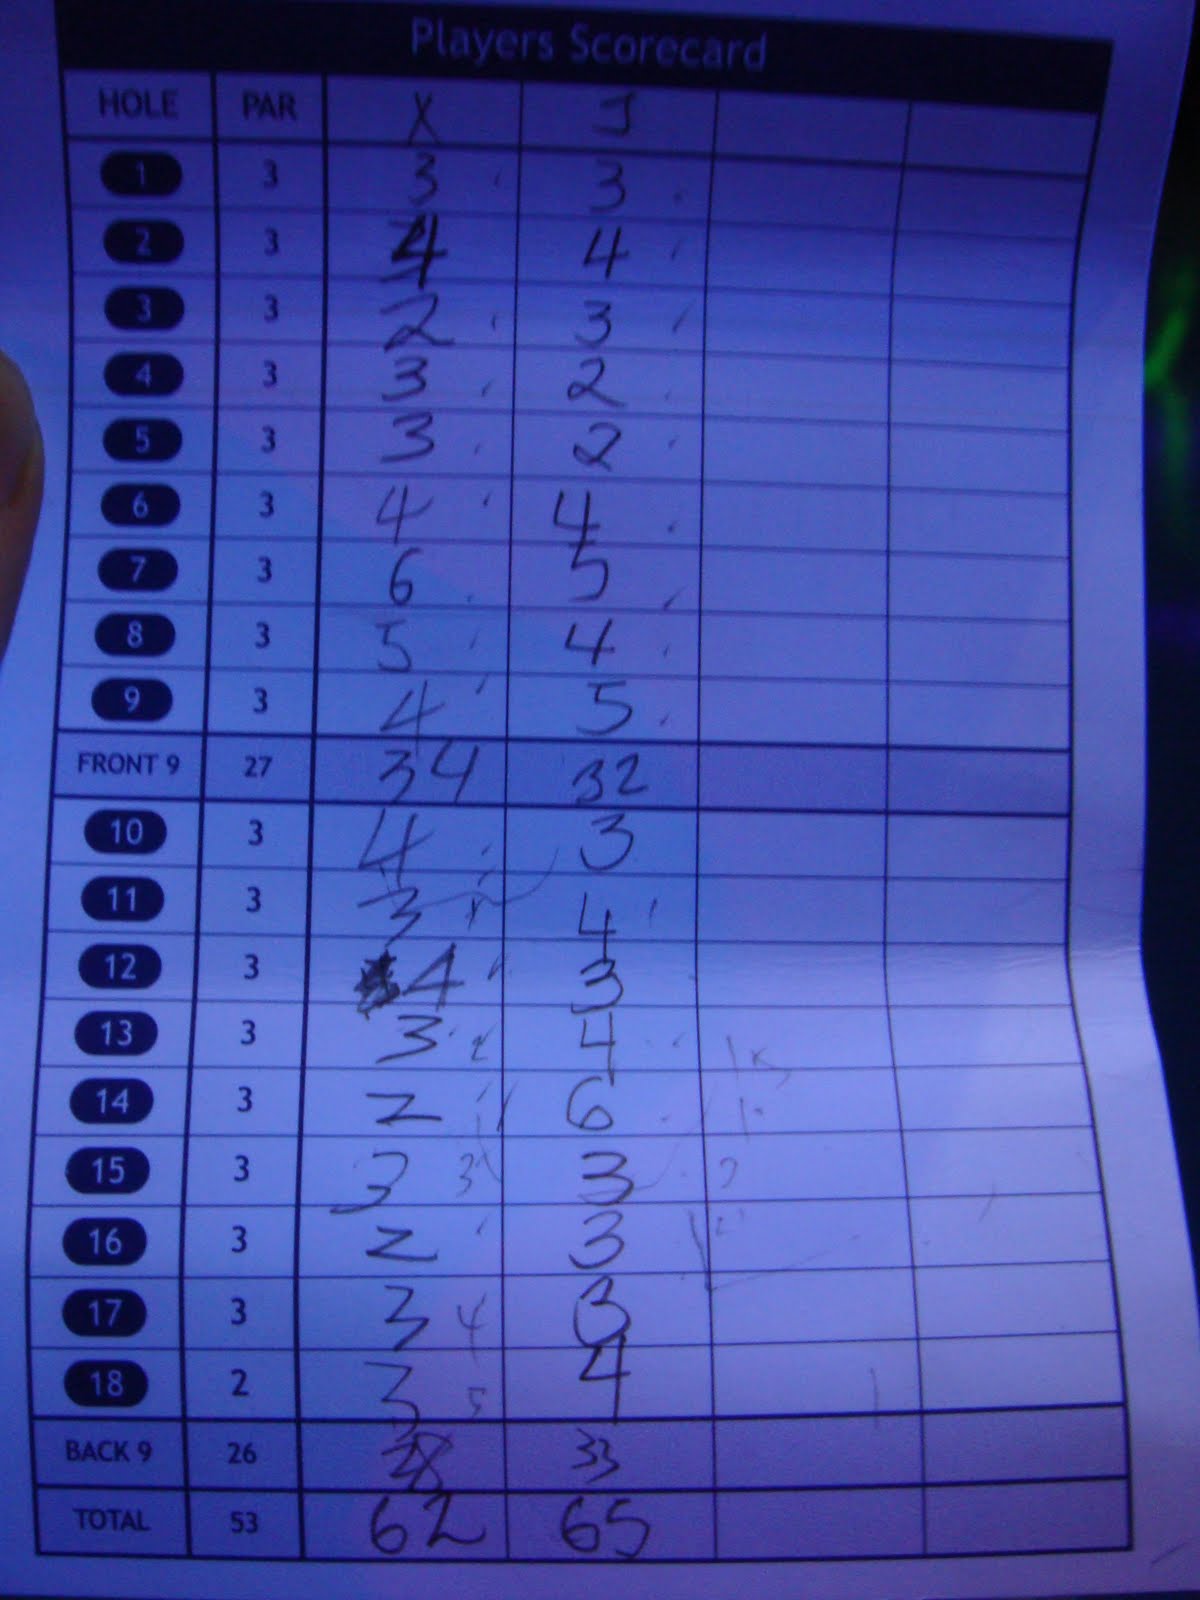 Players Scorecard
HOLE PAR X J
1 3 3 3
2 3 4 4
3 3 2 3
4 3 3 2
5 3 3 2
6 3 4 4
7 3 6 5
8 3 5 4
9 3 4 5
FRONT 9 27 34 32
10 3 4 3
11 3 3 4
12 3 4 3
13 3 3 4
14 3 2 6
15 3 3 3 3
16 3 2 3
17 3 3 4 3
18 2 3 5 4
BACK 9 26 28 33
TOTAL 53 62 65